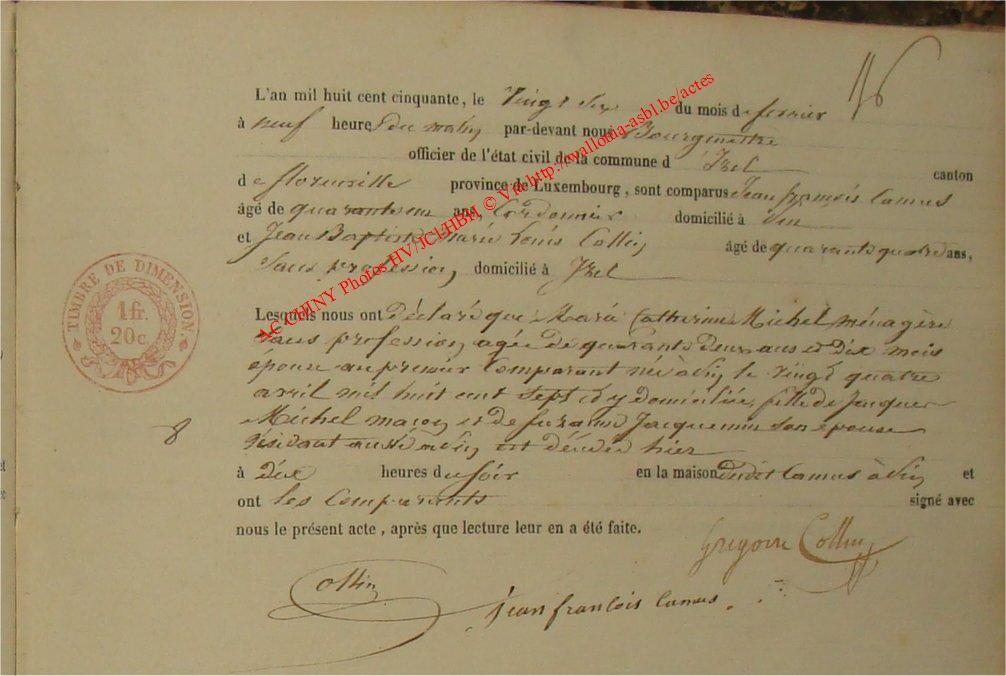 116
L'an mil huit cent cinquante, le Vingt Six du mois de fevrier
à neuf heures du matin par-devant nous Bourgmestre
officier de l'état civil de la commune d' Izel canton
de florenville province de Luxembourg, sont comparus Jean françois Camus
âgé de quarante un ans, Cordonnier domicilié à vin
et Jean Baptiste Marie Louis Collin âgé de quarante quatre ans,
Sans profession domicilié à Izel
Lesquels nous ont Déclaré que Maria Catherine Michel ménagère
Sans profession agée de quarante deux ans et dix mois
épouse au premier Comparant née à vin le vingt quatre
avril mil huit cent sept et y domiciliée, fille de Jacques
Michel maçon et de Suzanne Jacquemin son épouse
résidant aussi à vin est décédée hier
à dix heures du soir en la maison dudit Camus à vin et
ont les Comparants signé avec
nous le présent acte, après que lecture leur en a été faite.
Gregoire Collin
Collin
jean francois Camus
TIMBRE DE DIMENSION
1 fr.
20 c.
8
AC CHINY Photos HV/JCl/HBH, © Via http://wallonia-asbl.be/actes